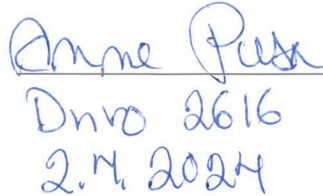 Anne
Dnro 2616
2.4.2024